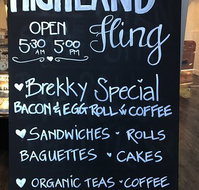 HIGHLAND
OPEN Fling
5:30 5:00
AM PM
♥ Brekky Special
BACON & EGG ROLL & COFFEE
♥ SANDWICHES • ROLLS
BAGUETTES • CAKES
♥ ORGANIC TEAS • COFFEE